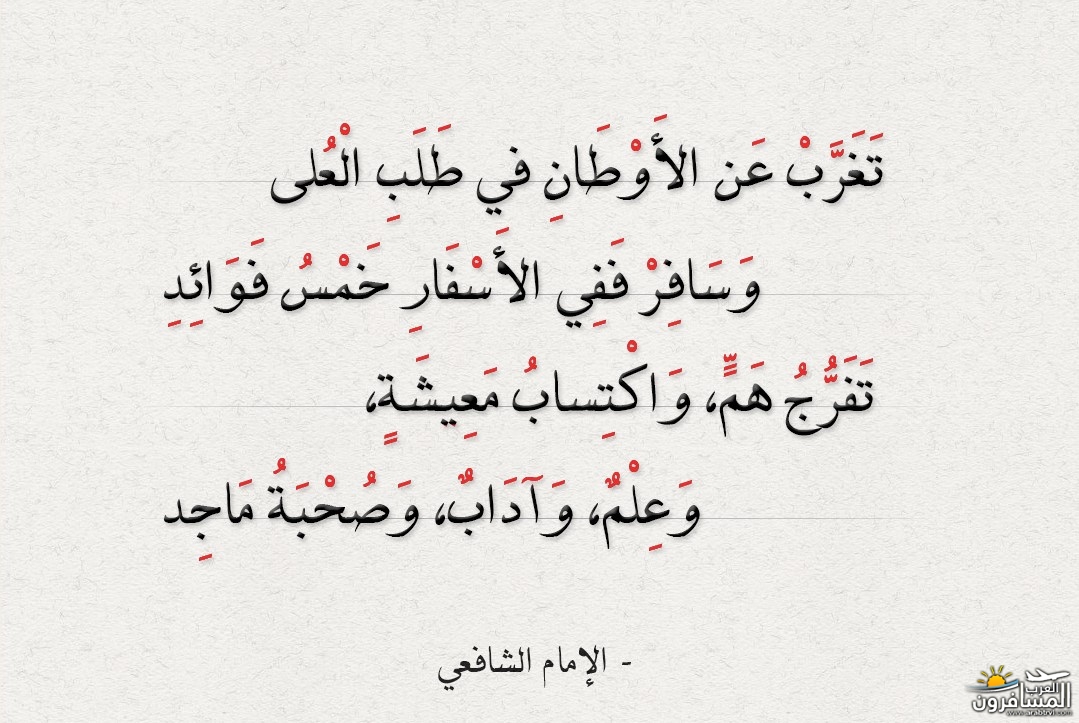 تَغَرَّبْ عَن الأَوْطَانِ في طَلَبِ الْعُلى
وَسَافِرْ فَفِي الأَسْفَارِ خَمْسُ فَوَائِدِ
تَفَرُّجُ هَمٍّ، وَاكْتِسابُ مَعِيشَةٍ،
وَعِلْمٌ، وَآدَابٌ، وَصُحْبَةُ مَاجِد
- الإمام الشافعي
المسافرون العرب
www.arabtrvl.com